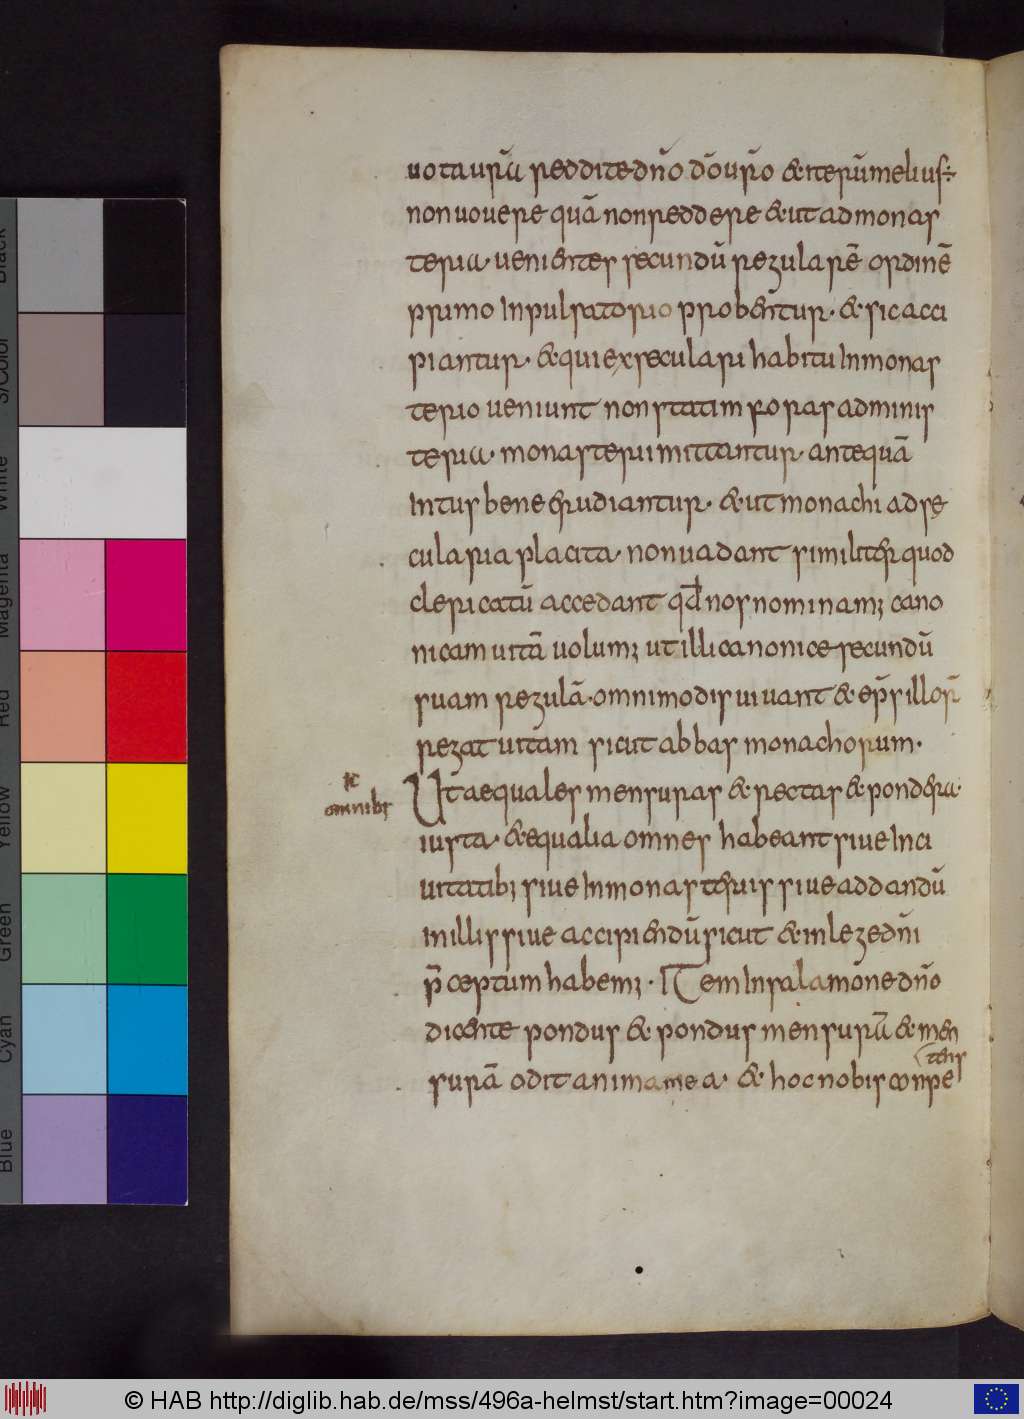 uota ur̄a reddite dn̄o dō ur̄o & iterū melius÷
non uouere quā non reddere & ut ad monas
teria· uenientes secundū regularē ordinē
primo in pulsatorio probentur· & sic acci
piantur· & qui ex seculari habitu in monas
terio ueniunt non statim foras ad minis
teria· monasterii mittantur· antequā
intus bene erudiantur· & ut monachi ad sę
cularia placita· non uadant similiter quod
clericatū accedant qđ nos nominam; cano
nicam uitā uolum; ut illi canonice secundū
suam regulā· omnimodis uiuant & ep̄s illor̄
regat uitam sicut abbas monachorum·
k
omnibs
Ut aequales mensuras & rectas & pondera·
iusta· & equalia omnes habeant siue in ci
uitatib; siue in monasteriis siue ad dandū
in illis siue accipiendū sicut & in lege dn̄i
p̄ceptum habem;· ITem in salamone dn̄o
dicente pondus & pondus mensurā & men
surā odit anima mea· & hoc nobis conpe
tens
Black
3/Color
White
Magenta
Red
Yellow
Green
Cyan
Blue
© HAB http://diglib.hab.de/mss/496a-helmst/start.htm?image=00024